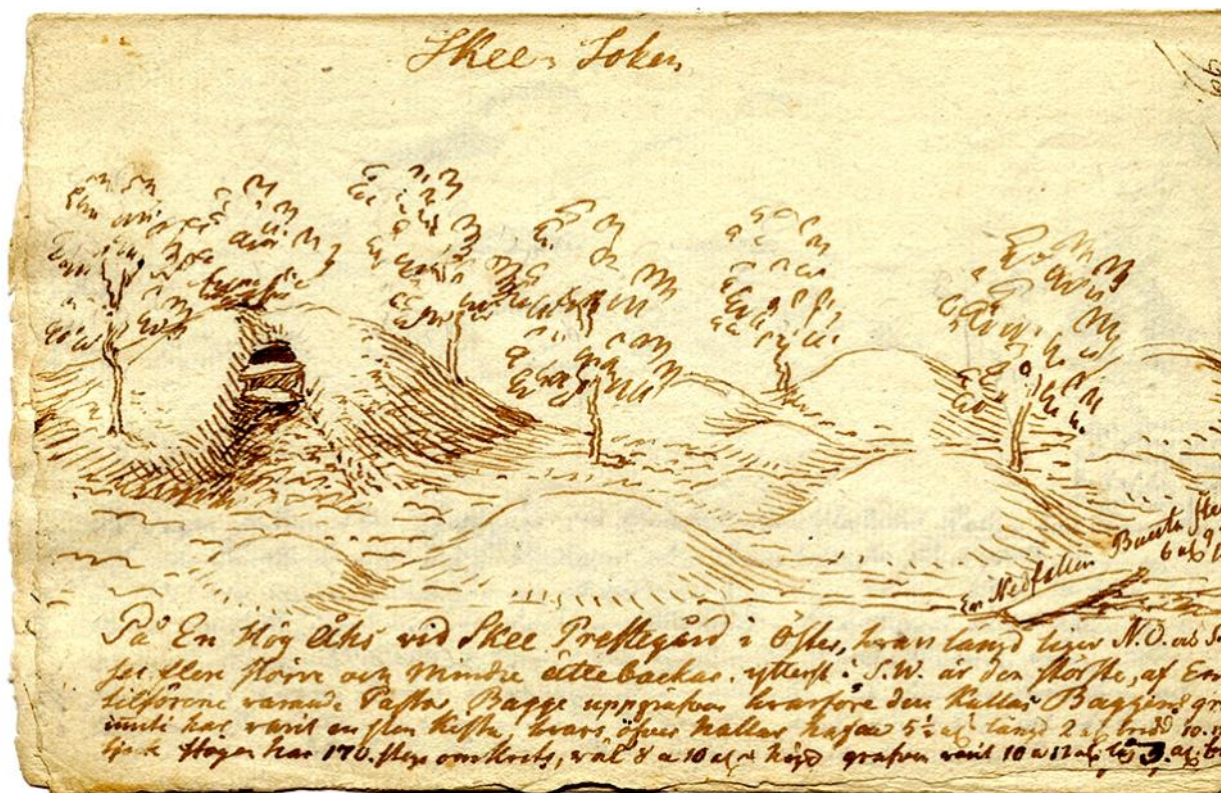 Skee Soken
En Nedfallen Bauta Ste
6 al 9
På En Hög Åhs vid Skee Prestegård i Öster, hvars längd liger N.O. och S
ses flere större och mindre ättebackar. ytterst i S.W. är den störste, af En
tilförene varande Pastor Bagge uppgrafven hvarföre den Kallas Baggens gr
inuti har varit en sten Kista, hvars öfver hallar 5½ al längd 2 al bredd 10.
Högen har 170. steg omkrets, väl 8 a 10 al i högd grafven varit 10 a 12 al. 3 al.